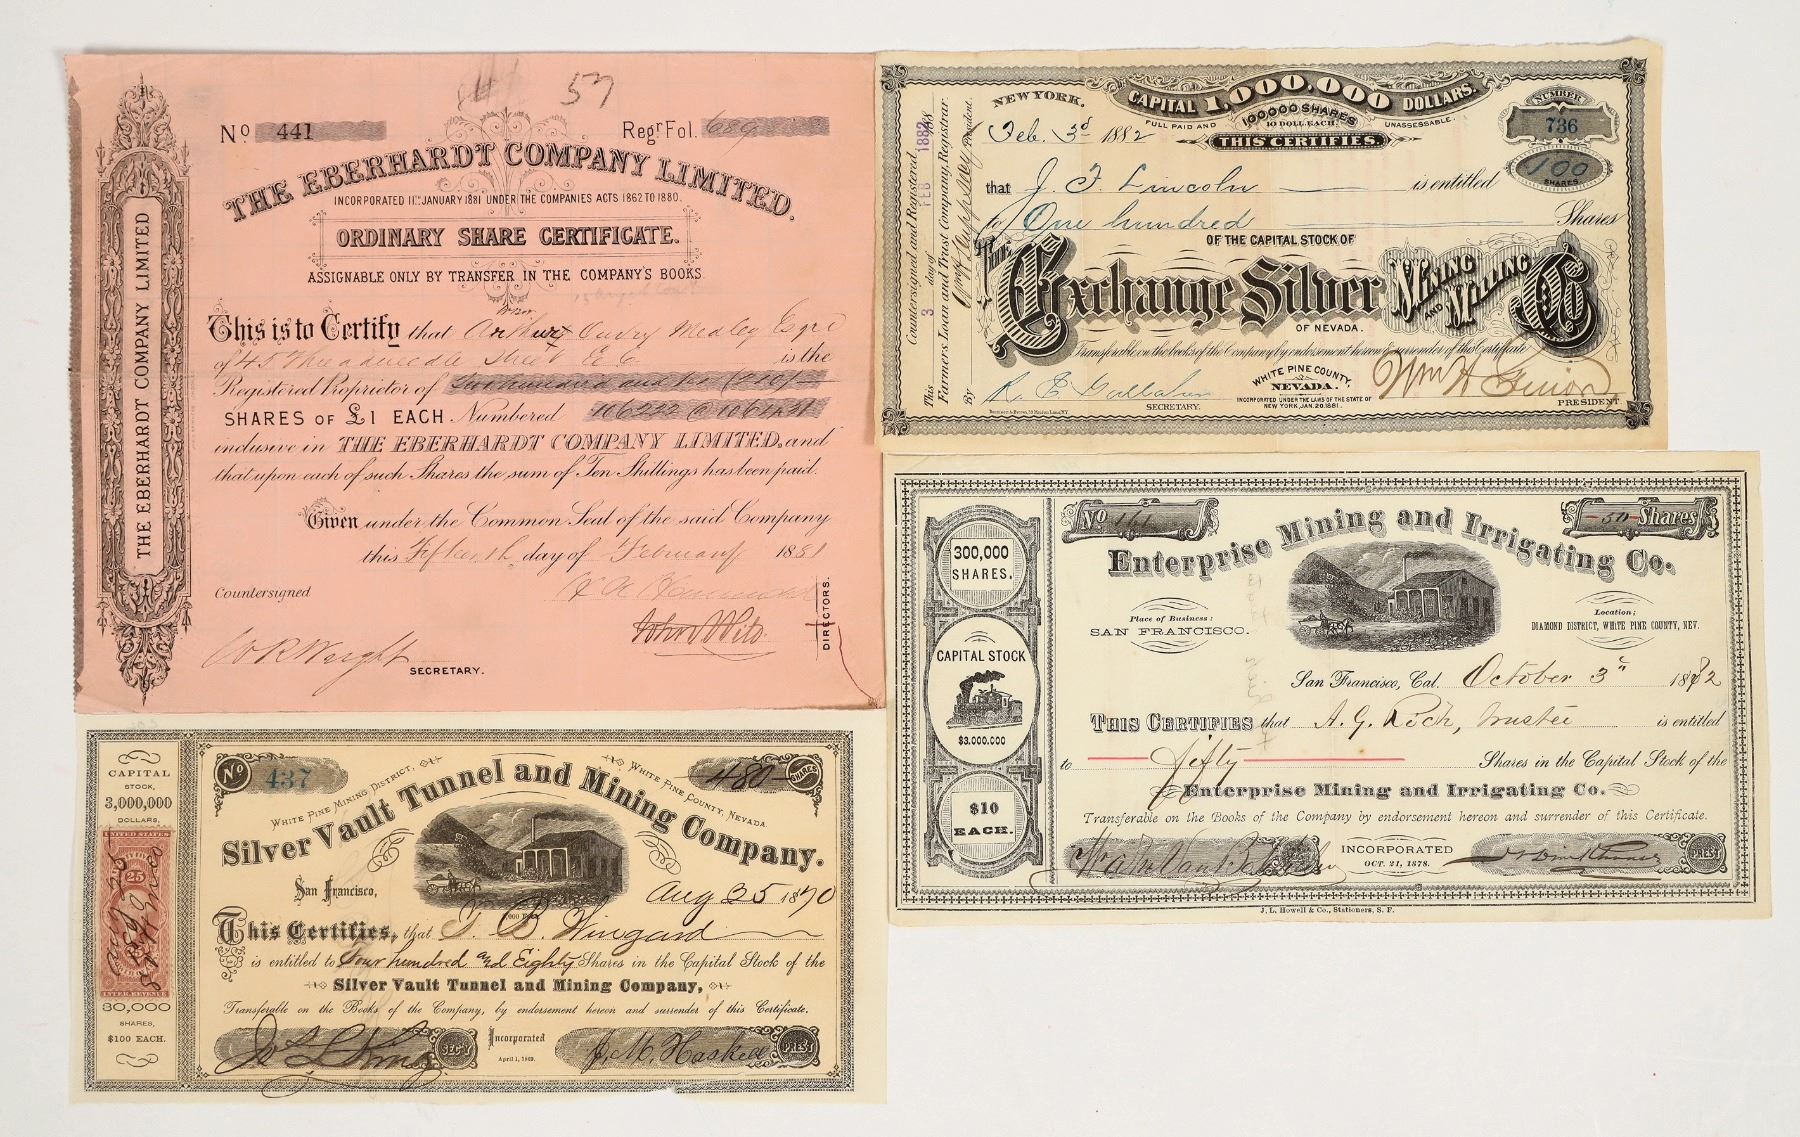 57
No 441
Regr Fol. 689
THE EBERHARDT COMPANY LIMITED.
INCORPORATED 11TH JANUARY 1881 UNDER THE COMPANIES ACTS 1862 TO 1880.
ORDINARY SHARE CERTIFICATE.
ASSIGNABLE ONLY BY TRANSFER IN THE COMPANY'S BOOKS
This is to Certify that Arthur Medley Esqre
of 45 Threadneedle Street E C is the
Registered Proprietor of Two hundred and ten (210)
SHARES OF £1 EACH Numbered 106222 @ 106431
inclusive in THE EBERHARDT COMPANY LIMITED, and
that upon each of such Shares the sum of Ten Shillings has been paid.
Given under the Common Seal of the said Company
this Fifteenth day of February 1881
Countersigned
W R Wright
SECRETARY.
DIRECTORS.
THE EBERHARDT COMPANY LIMITED
NEW YORK.
CAPITAL 1,000,000 DOLLARS.
FULL PAID AND 100,000 SHARES 10 DOLL. EACH. UNASSESSABLE.
NUMBER
736
Feb. 3d 1882
THIS CERTIFIES.
100
SHARES
that J. F. Lincoln is entitled
to One hundred Shares
OF THE CAPITAL STOCK OF
The Exchange Silver Mining and Milling Co
OF NEVADA.
Transferable on the books of the Company by endorsement hereon & surrender of this Certificate
WHITE PINE COUNTY,
NEVADA.
INCORPORATED UNDER THE LAWS OF THE STATE OF
NEW YORK, JAN. 20. 1881.
SECRETARY.
PRESIDENT
Countersigned and Registered,
This 3 day of FEB 1882 188
Farmers Loan and Trust Company, Registrar
By President.
No 161
50 Shares
Enterprise Mining and Irrigating Co.
300,000
SHARES.
CAPITAL STOCK
$3.000.000
$10
EACH.
Place of Business:
SAN FRANCISCO.
Location;
DIAMOND DISTRICT, WHITE PINE COUNTY, NEV.
San Francisco, Cal. October 3rd 1882
THIS CERTIFIES that A. G. Rich, trustee is entitled
to fifty Shares in the Capital Stock of the
Enterprise Mining and Irrigating Co.
Transferable on the Books of the Company by endorsement hereon and surrender of this Certificate.
INCORPORATED
OCT. 21, 1878.
PREST
J. L. Howell & Co., Stationers, S. F.
CAPITAL
STOCK,
3,000,000
DOLLARS,
UNITED STATES
25
INTER. REVENUE
30,000
SHARES,
$100 EACH.
No 437
480 SHARES
WHITE PINE MINING DISTRICT, WHITE PINE COUNTY, NEVADA.
Silver Vault Tunnel and Mining Company.
San Francisco, Aug 25 1870
This Certifies, that T. B. Wingard
is entitled to Four hundred and Eighty Shares in the Capital Stock of the
Silver Vault Tunnel and Mining Company,
Transferable on the Books of the Company, by endorsement hereon and surrender of this Certificate.
Incorporated
April 1, 1869.
SEC'Y
J. M. Haskell
PREST